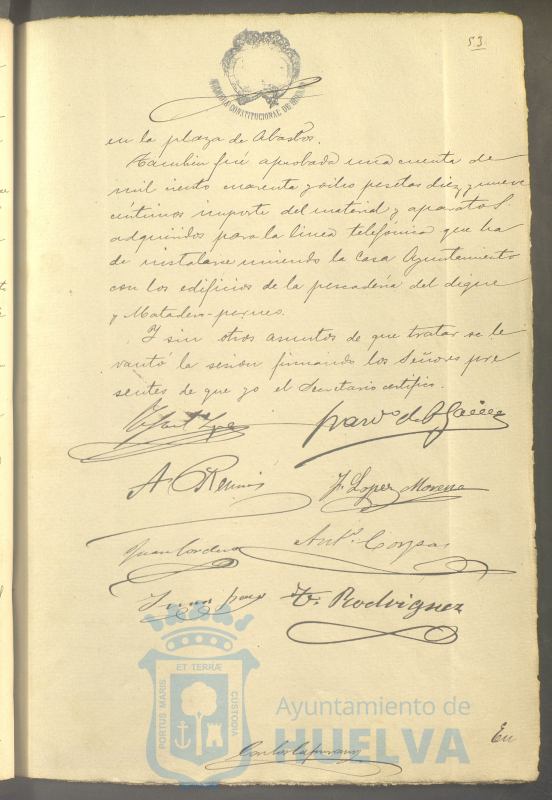 53
CONSTITUCIONAL DE
en la plaza de Abastos.
También fué aprobada una cuenta de
mil ciento cuarenta y ocho pesetas diez y nueve
céntimos importe del material y aparatos
adquiridos para la linea telefónica que ha
de instalarse uniendo la Casa Ayuntamiento
con los edificios de la pescadería del dique
y Matadero-
Y sin otros asuntos de que tratar se le
vantó la sesión firmando los Señores pre
sentes de que yo el Secretario certifico.
J. Lopez Moreno
Juan Cordero
Antº. Corpas
Rodriguez
PORTUS MARIS
ET TERRÆ
CUSTODIA
Ayuntamiento de
HUELVA
En